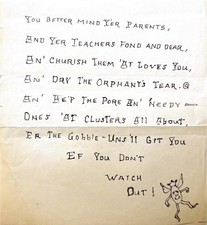 You Better Mind Yer Parents,
And Yer Teachers Fond and Dear,
An' Churish Them 'At Loves You,
An' Dry The Orphant's Tear.@
An' He'p The Pore An' Needy—
Ones 'At Clusters All About,
Er The Gobble-Uns'll Git You
Ef You Don't
Watch
Out!